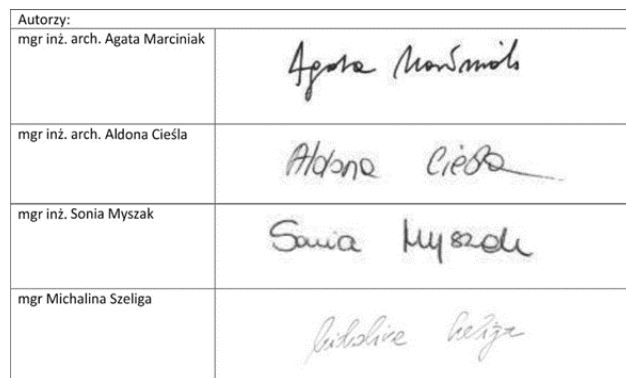 Autorzy:
mgr inż. arch. Agata Marciniak
Agata Marciniak
mgr inż. arch. Aldona Cieśla
Aldona Cieśla
mgr inż. Sonia Myszak
Sonia Myszak
mgr Michalina Szeliga
Michalina Szeliga